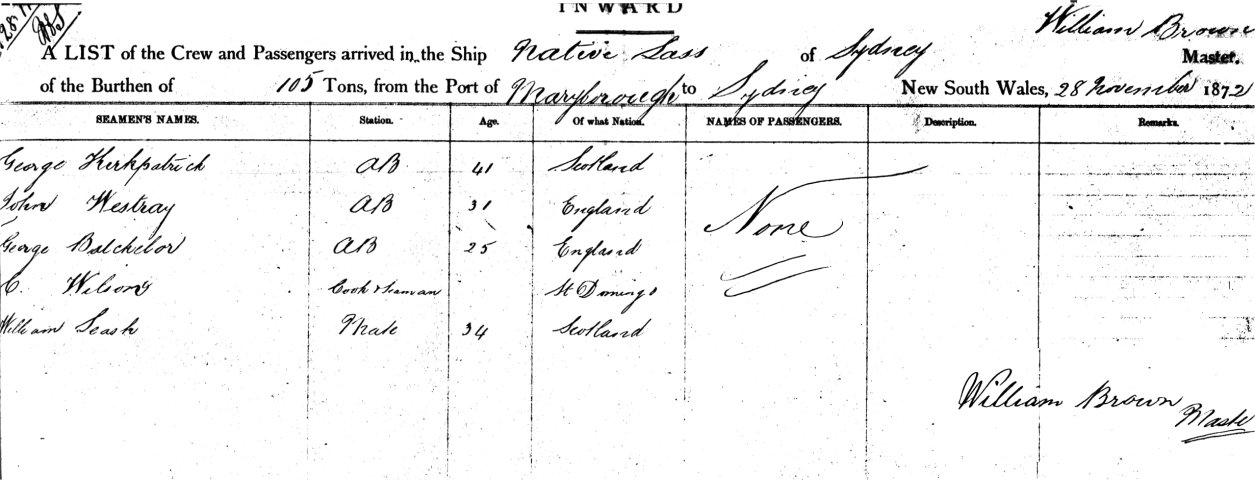 INWARD
William Brown
A LIST of the Crew and Passengers arrived in the Ship Native Lass of Sydney Master.
of the Burthen of 105 Tons, from the Port of Maryborough to Sydney New South Wales, 28 November 1872
SEAMEN'S NAMES. Station. Age. Of what Nation. NAMES OF PASSENGERS. Description. Remarks.
George Kirkpatrick AB 41 Scotland
John Westray AB 31 England None
George Batchelor AB 25 England
C. Wilson Cook & Seaman St Domingo
William Leask Mate 34 Scotland
William Brown
Master